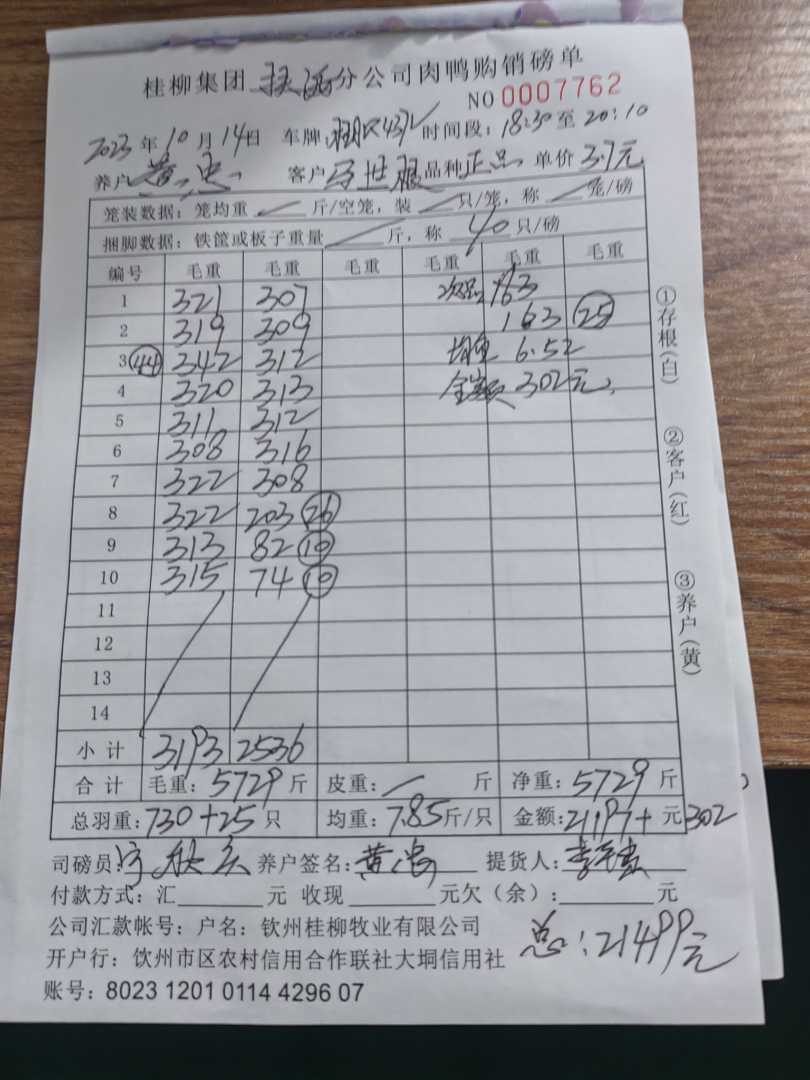 桂柳集团 分公司肉鸭购销磅单
NO 0007762
2023年10月14日 车牌: 时间段:18:30至20:10
养户 黄忠 客户 马世顺 品种 正品 单价 3.7元
笼装数据:笼均重 / 斤/空笼,装 / 只/笼,称 / 笼/磅
捆脚数据:铁筐或板子重量 / 斤,称 40 只/磅
编号 毛重 毛重 毛重 毛重 毛重 毛重
1 321 307 次品 163
2 319 309 163 25
3 44 342 312 均重 6.52
4 320 313 金额 302元
5 311 312
6 308 316
7 322 308
8 322 203 26
9 313 82 10
10 315 74 10
11
12
13
14
小计 3193 2536
合计 毛重:5729斤 皮重:/ 斤 净重:5729斤
总羽重:730+25只 均重:7.85斤/只 金额:21197+元302
司磅员: 养户签名:黄忠 提货人:
付款方式:汇 元 收现 元欠(余): 元
公司汇款帐号:户名:钦州桂柳牧业有限公司
总:21499元
开户行:钦州市区农村信用合作联社大垌信用社
账号:8023 1201 0114 4296 07
①存根(白)
②客户(红)
③养户(黄)